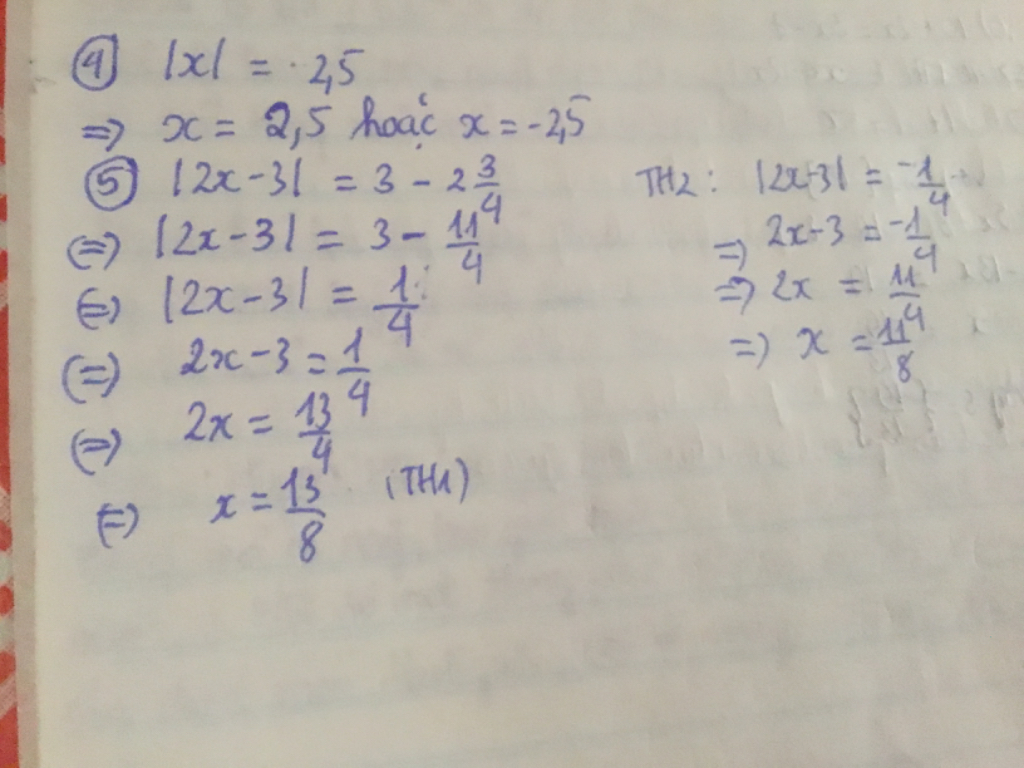 ④ |x| = 2,5
=> x = 2,5 hoặc x = -2,5
⑤ |2x - 3| = 3 - 2 3/4
(=) |2x - 3| = 3 - 11/4
(=) |2x - 3| = 1/4
(=) 2x - 3 = 1/4
(=) 2x = 13/4
(=) x = 13/8 (TH1)
TH2: |2x-3| = -1/4
=> 2x-3 = -1/4
=> 2x = 11/4
=> x = 11/8